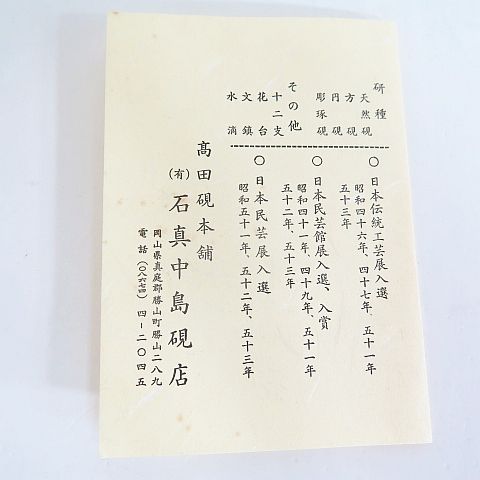 硯種
天然硯
方硯
円硯
彫琢硯
その他
十二支
花台
文鎮
水滴
○日本伝統工芸展入選
昭和四十六年、四十七年、五十一年
五十三年
○日本民芸館展入選、入賞
昭和四十一年、四十九年、五十一年
五十二年、五十三年
○日本民芸展入選
昭和五十一年、五十二年、五十三年
髙田硯本舗
(有)石真中島硯店
岡山県真庭郡勝山町勝山二八九
電話(〇八六七四)四-二〇四五